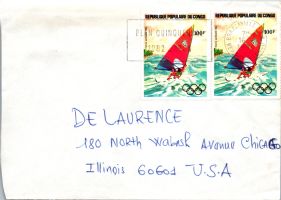 REPUBLIQUE POPULAIRE DU CONGO
100F
REPUBLIQUE POPULAIRE DU CONGO
100F
PLAN QUINQUEN
1982
DE LAURENCE
180 North Wabash Avenue Chicago
Illinois 60601 U.S.A